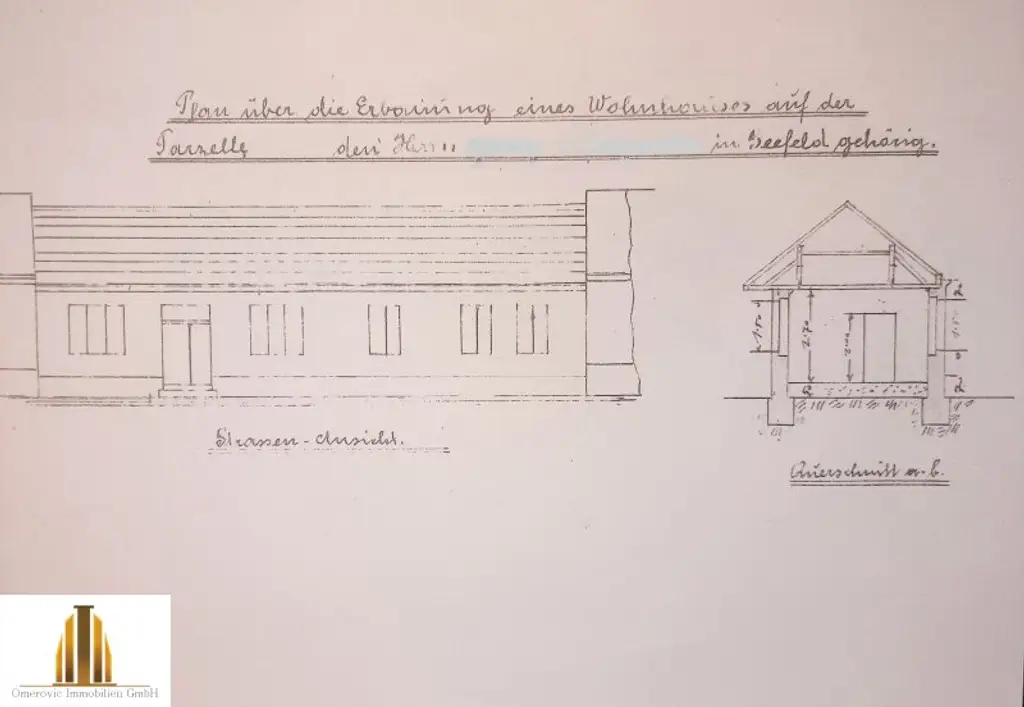 Plan über die Erbauung eines Wohnhauses auf der
Parzelle den Herrn in Seefeld gehörig.
2
1.50
2.70
2.00
Strassen-Ansicht.
Querschnitt a-b.
Omerovic Immobilien GmbH